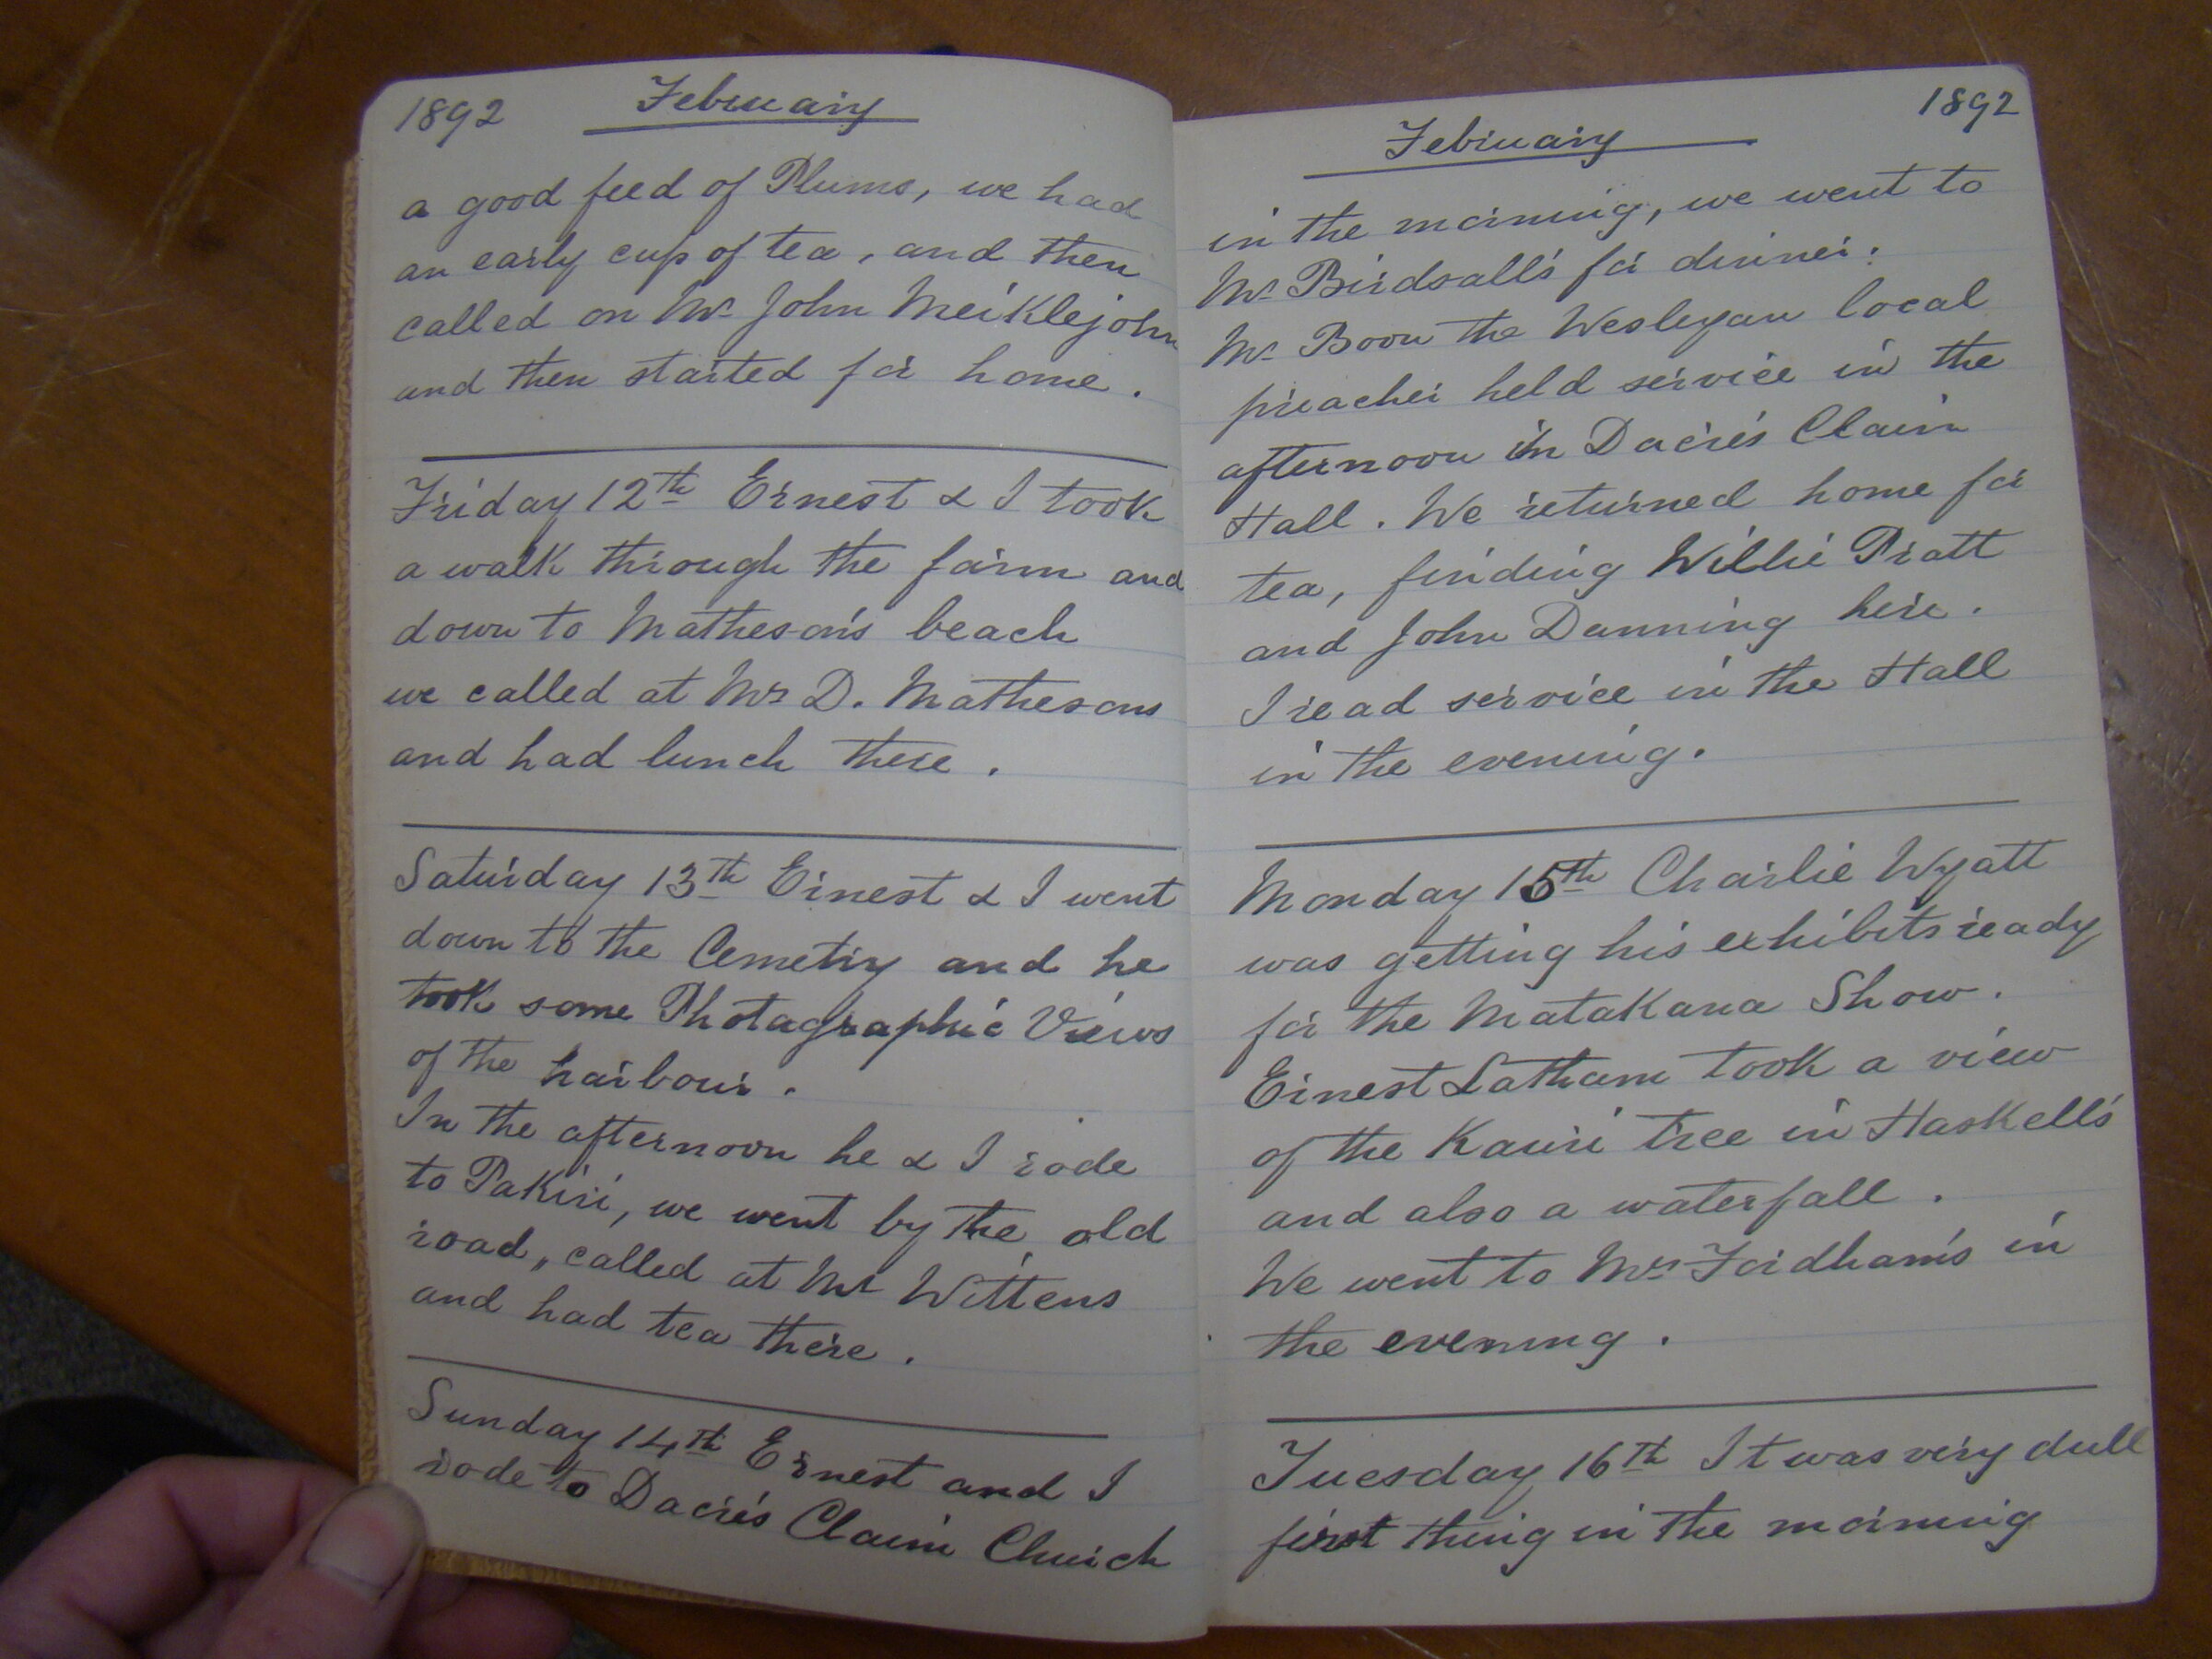 1892 February
a good feed of Plums, we had
an early cup of tea, and then
called on Mr John Meiklejohn
and then started for home.
Friday 12th Ernest & I took
a walk through the farm and
down to Matheson's beach
we called at Mr D. Mathesons
and had lunch there.
Saturday 13th Ernest & I went
down to the Cemetry and he
took some Photographic Views
of the harbour.
In the afternoon he & I rode
to Pakiri, we went by the old
road, called at Mr Wittens
and had tea there.
Sunday 14th Ernest and I
rode to Dacre's Claim Church
1892
February
in the morning, we went to
Mr Birdsall's for dinner.
Mr Boon the Wesleyan local
preacher held service in the
afternoon in Dacre's Claim
Hall. We returned home for
tea, finding Willie Pratt
and John Dunning here.
I read service in the Hall
in the evening.
Monday 15th Charlie Wyatt
was getting his exhibits ready
for the Matakana Show.
Ernest Latham took a view
of the Kauri tree in Haskell's
and also a waterfall.
We went to Mrs Fordham's in
the evening.
Tuesday 16th It was very dull
first thing in the morning